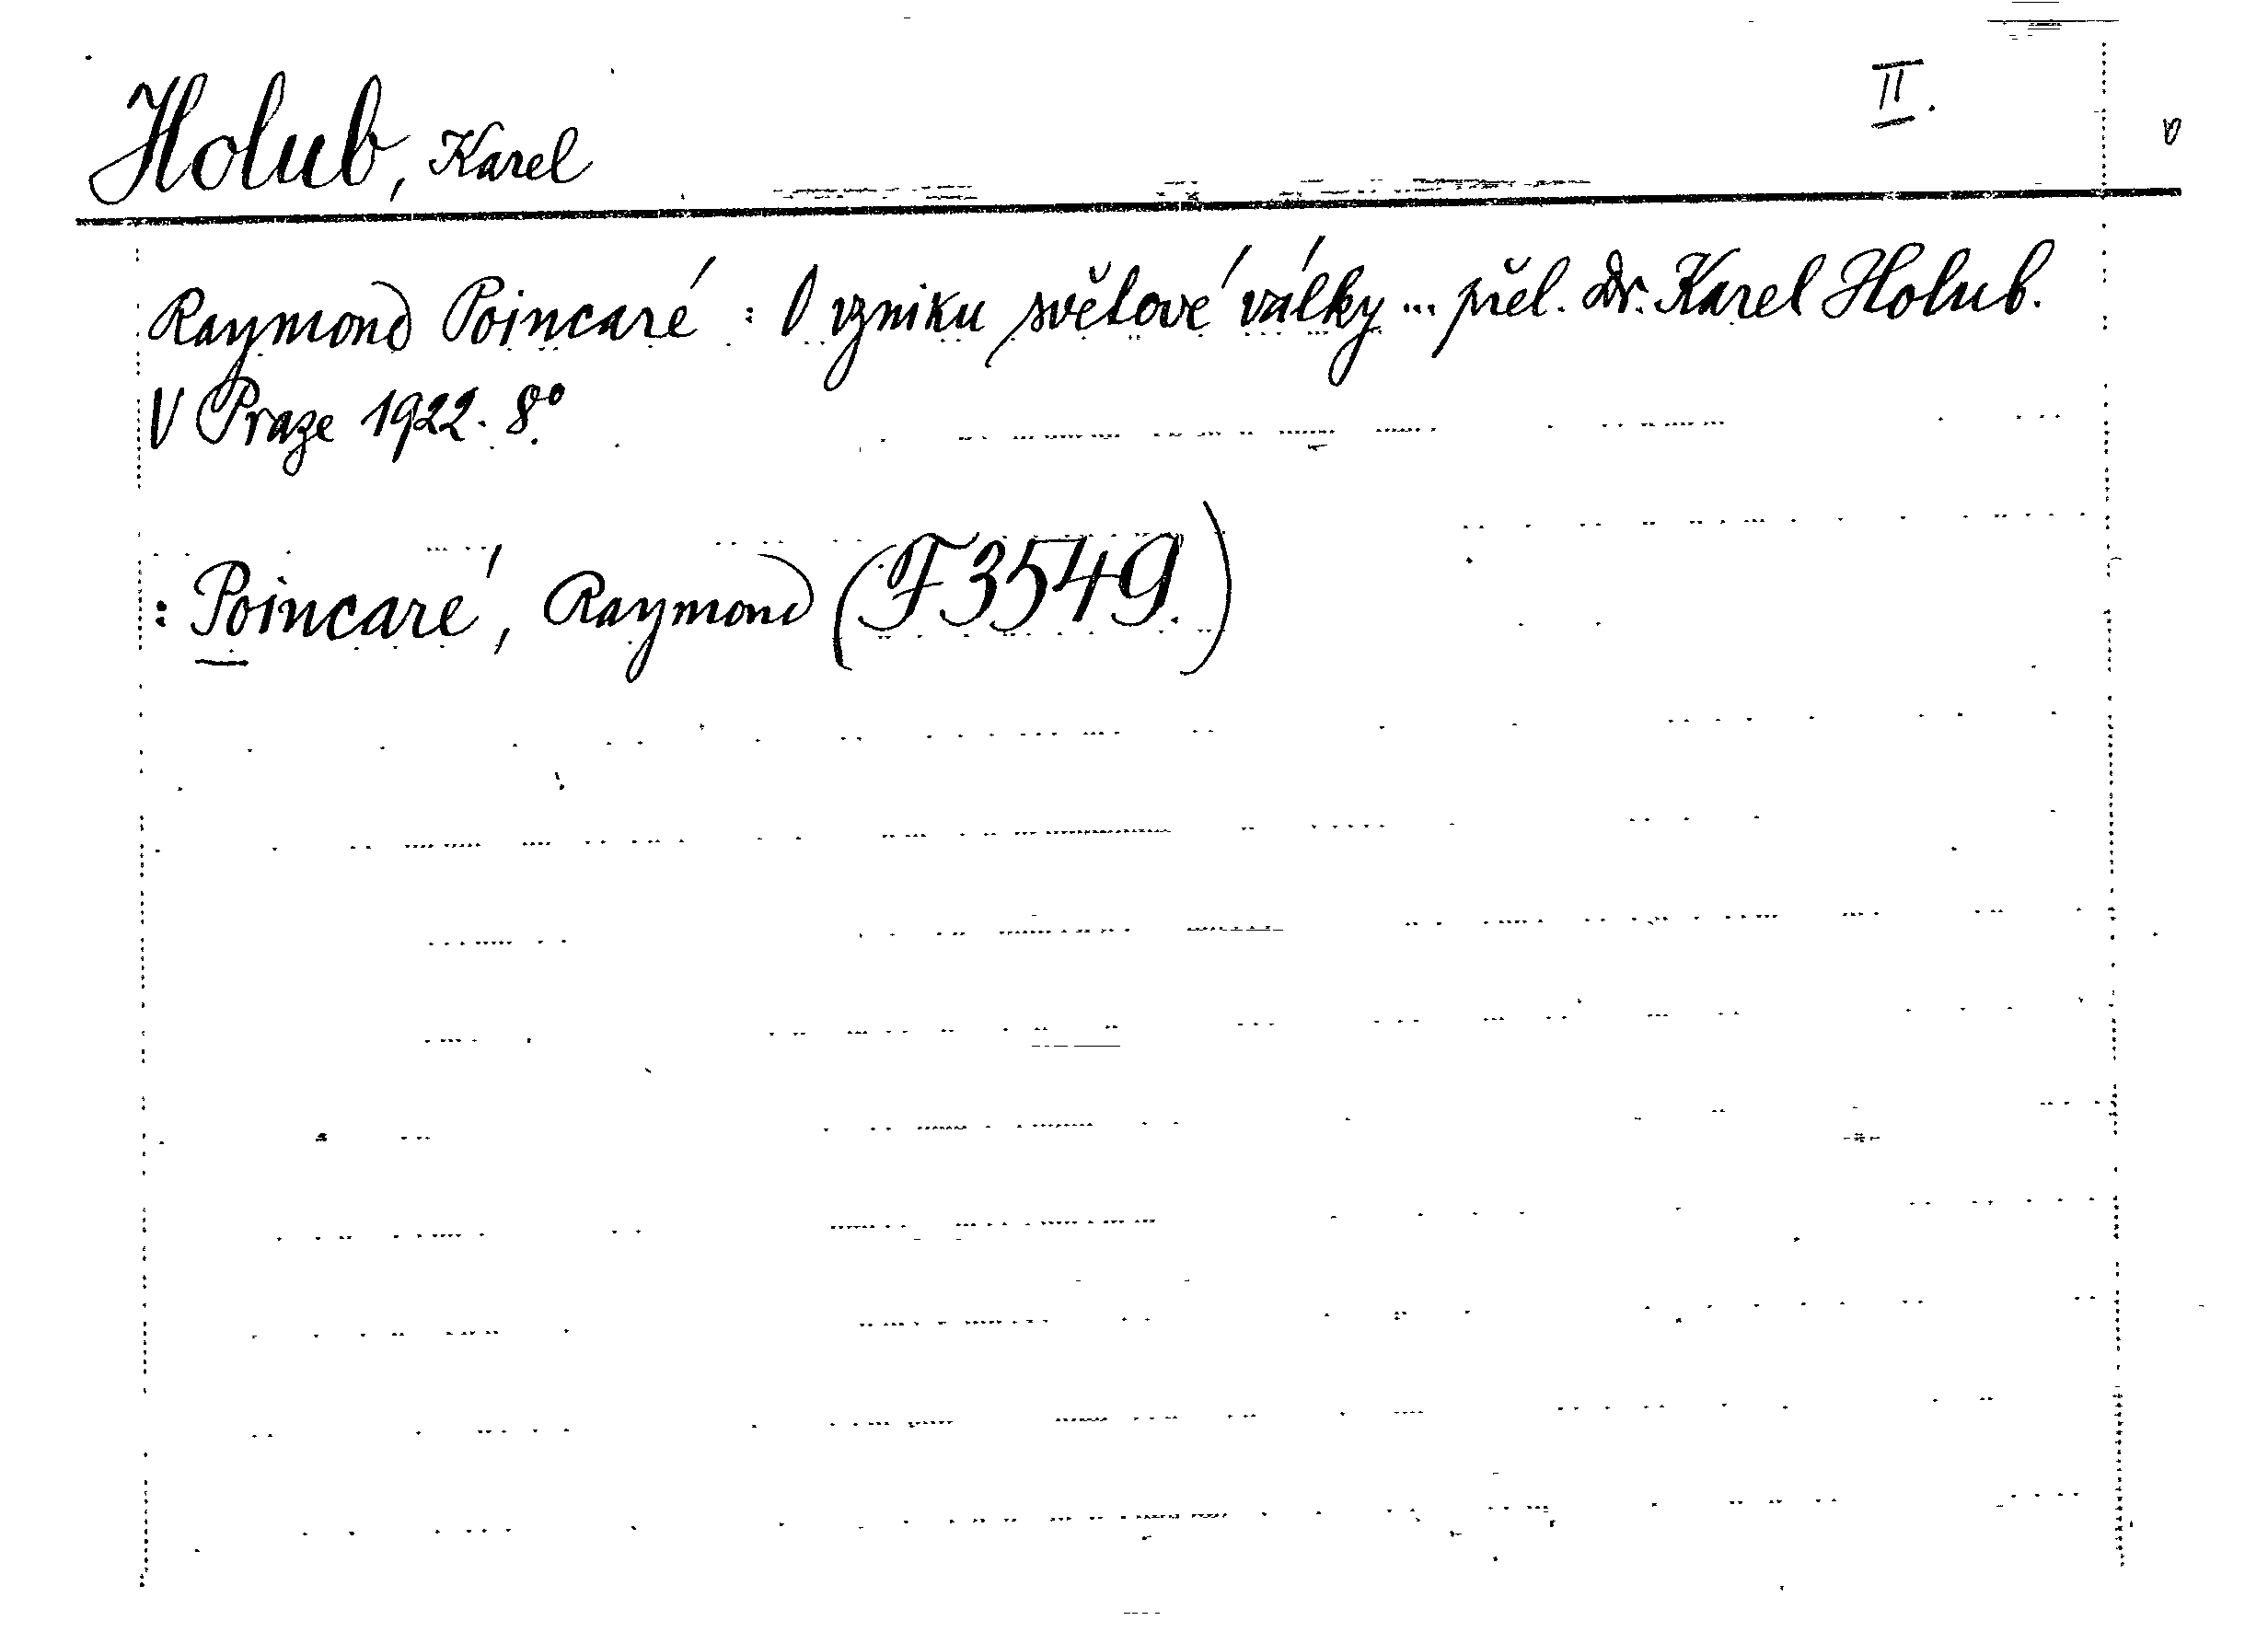 Holub, Karel II.
Raymond Poincaré : O vzniku světové války ... přel. Dr. Karel Holub.
V Praze 1922. 8°.
: Poincaré, Raymond (F 3549.)